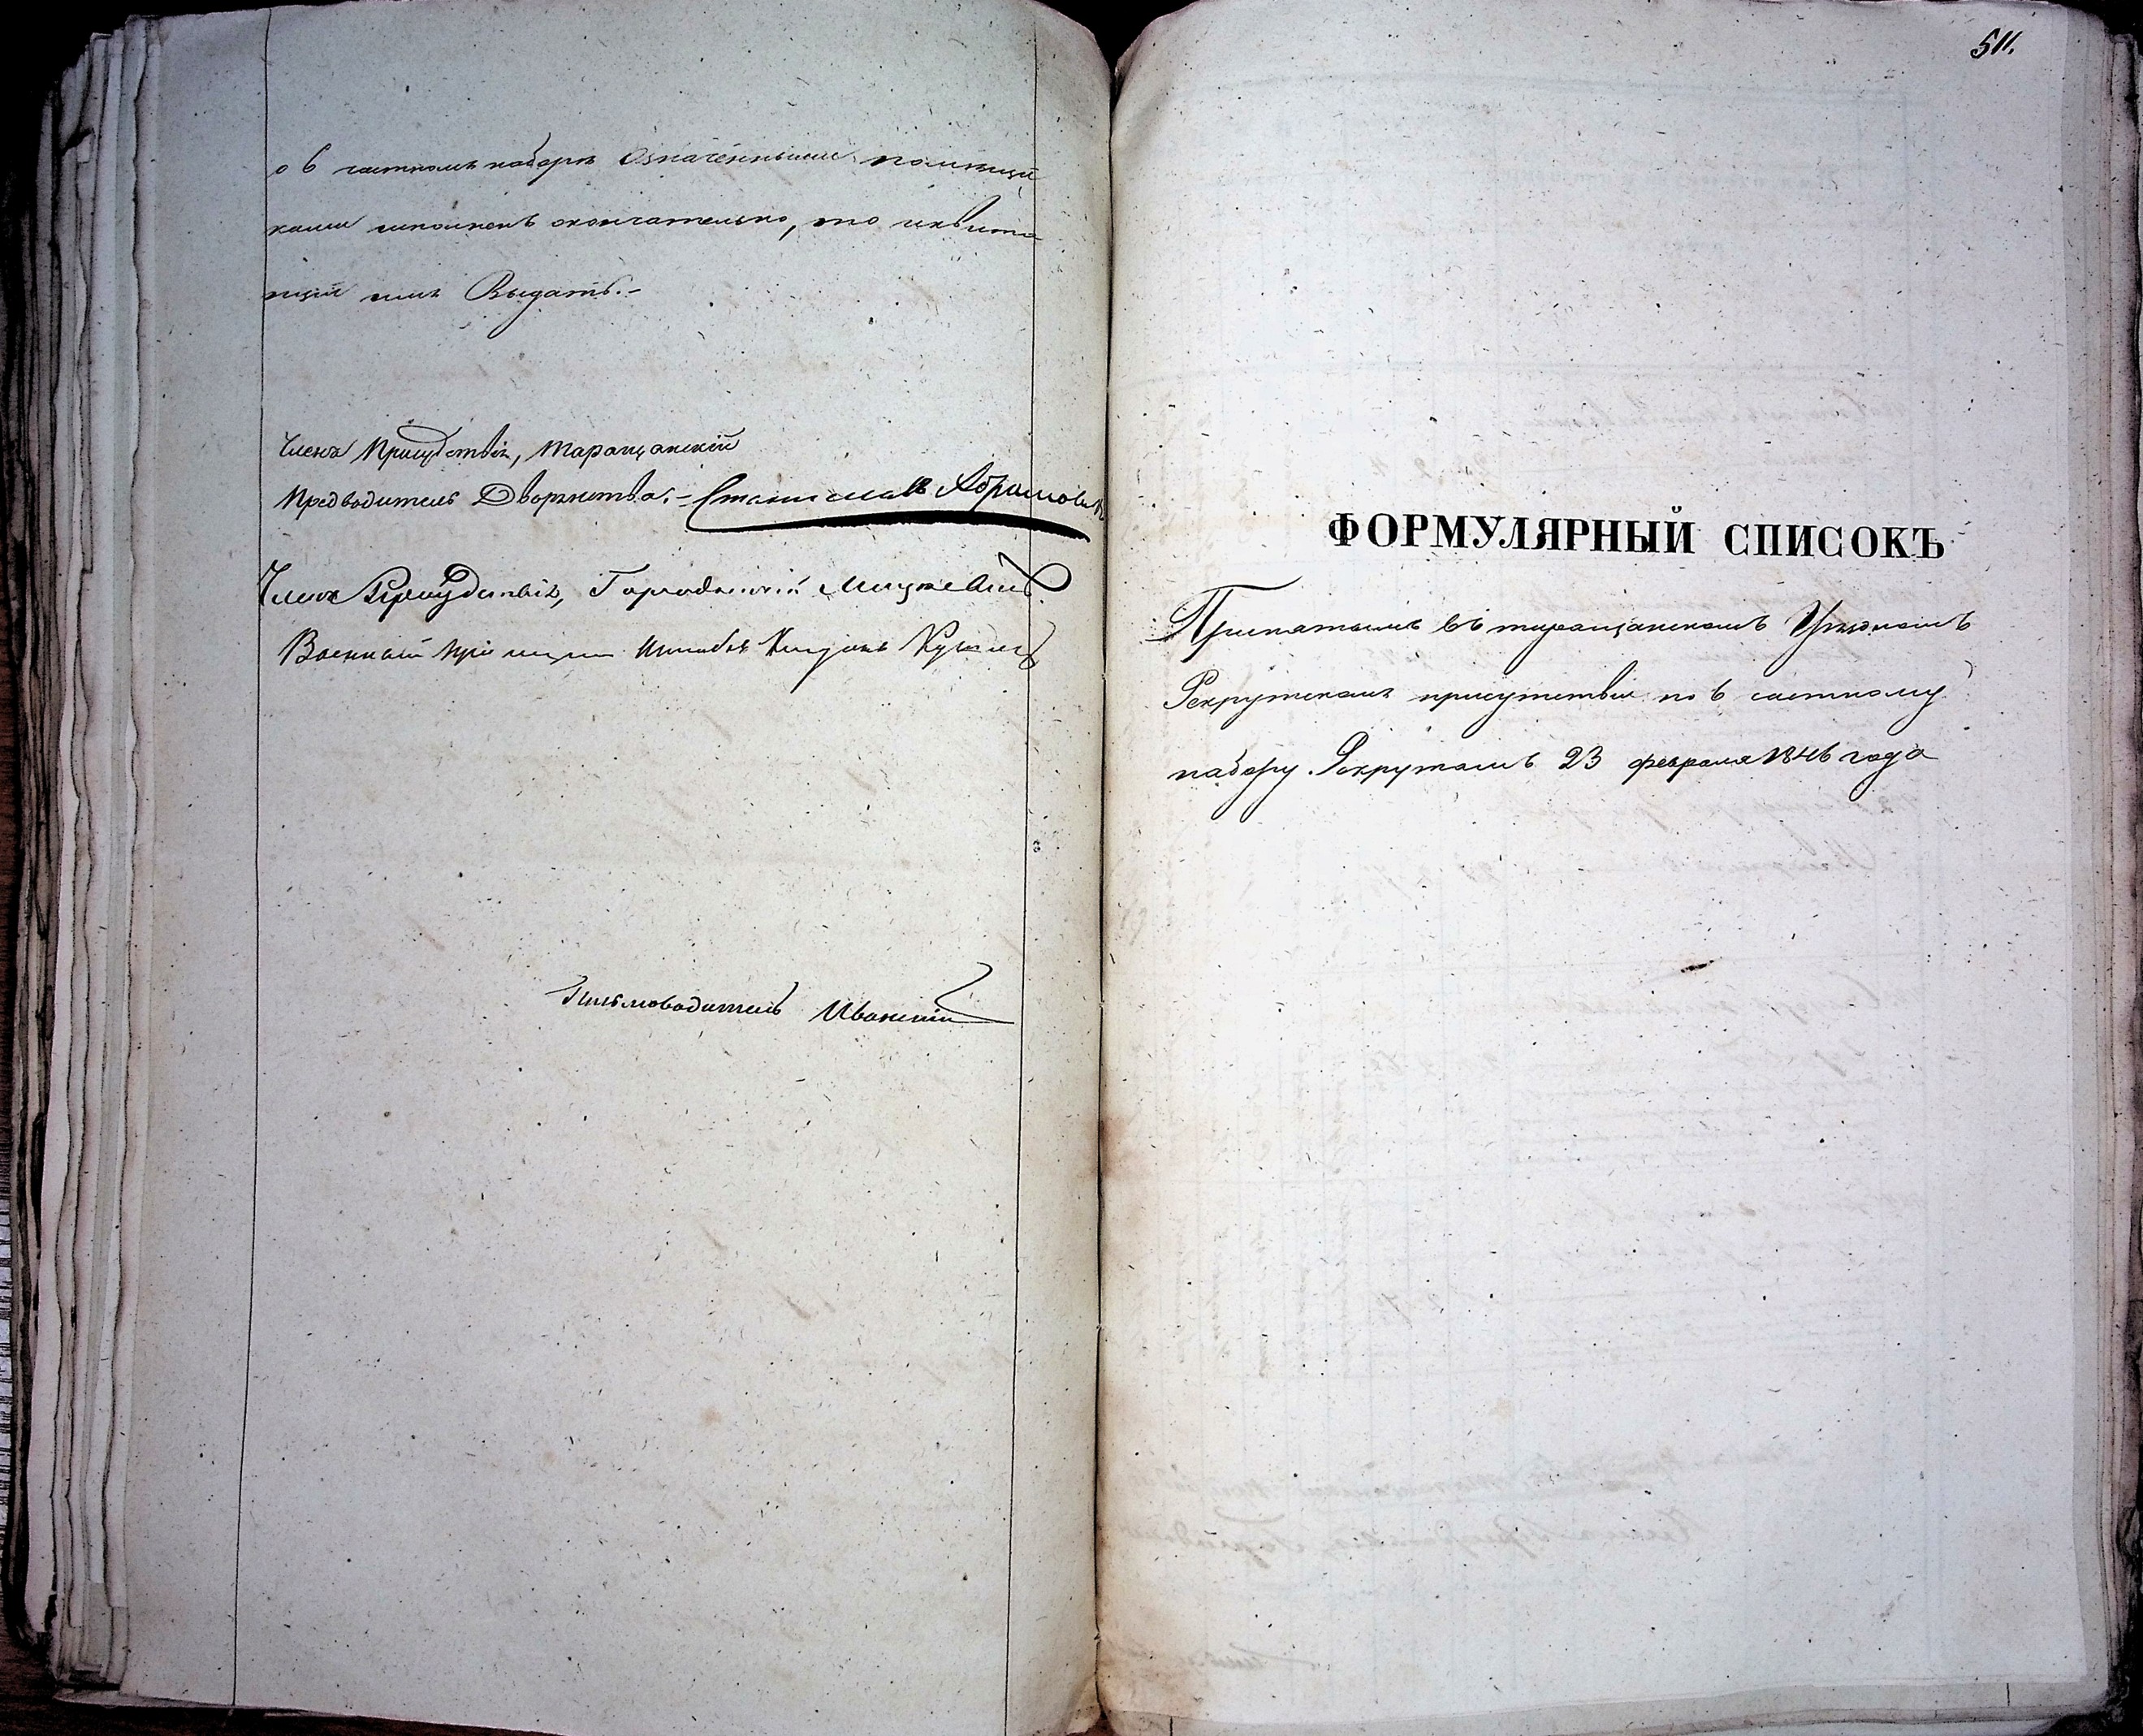 о 6 частномъ наборѣ Означенными помѣщи
ками исполненъ окончательно, то и квита
нціи имъ Выдать.-
Членъ Присудствія, Таращанскій
Предводитель Дворянства.- Станиславъ Абрамович
Членъ Присудствія, Городничій Мицкевичъ
Военный Пріемщик Штабсъ Капитанъ
Письмоводитель Иванскій
511.
ФОРМУЛЯРНЫЙ СПИСОКЪ
Принятымъ въ таращанскомъ Уѣздномъ
Рекрутскомъ присутствіи по 6 частному
набору Рекрутамъ 23 февраля 1846 года